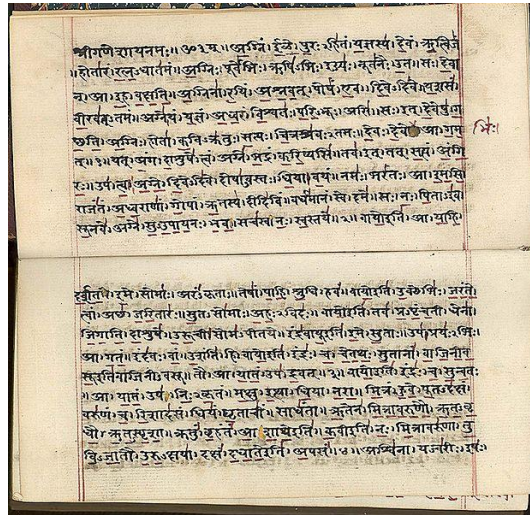 श्रीगणेशायनमः॥ ॐ३म्॥ अग्निं। ईळे। पुरःऽहितं। यज्ञस्य। देवं। ऋत्विजं
।होतारं। रत्नऽधातमं॥ अग्निः। पूर्वेभिः। ऋषिऽभिः। ईड्यः। नूतनैः। उत। सः। देवा
न्। आ। इह। वक्षति॥ अग्निना। रयिं। अश्नवत्। पोषं। एव। दिवेऽदिवे। यशसं।
वीरवत्ऽतमं॥ अग्ने। यं। यज्ञं। अध्वरं। विश्वतः। परिऽभूः। असि। सः। इत्। देवेषु। ग
च्छति॥ अग्निः। होता। कविऽक्रतुः। सत्यः। चित्रश्रवःऽतमः। देवः। देवे आ। गम
भिः।
त्॥१॥ यत्। अंग। दाशुषे। त्वं। अग्ने। भद्रं। करिष्यसि। तव। इत्। तत्। सत्यं। अंगि
रः॥ उप। त्वा। अग्ने। दिवेऽदिवे। दोषाऽवस्तः। धिया। वयं। नमः। भरंतः। आ। इमसि॥
राजंतं। अध्वराणां। गोपां। ऋतस्य। दीदिविं। वर्धमानं। स्वे। दमे॥ सः। नः। पिताऽइव
सूनवे। अग्ने। सुऽउपायनः। भव। सचस्व। नः। स्वस्तये॥२॥ वायो इति। आ। याहि।
दर्शत। इमे। सोमाः। अरंऽकृताः। तेषां। पाहि। श्रुधि। हवं॥ वायो इति। उक्थेभिः। जरंते
त्वां। अच्छ। जरितारः। सुतऽसोमाः। अहःऽविदः॥ वायो इति। तव। प्रऽपृंचती। धेना
जिगाति। दाशुषे। उरूची। सोमऽपीतये॥ इंद्रवायू इति। इमे। सुताः। उप। प्रयःऽभिः।
आ। गतं। इंदवः। वां। उशंति। हि॥ वायो इति। इंद्रः। च। चेतथः। सुतानां। वाजिनीव
सू इति वाजिनीवसू। तौ। आ। यातं। उप। द्रवत्॥३॥ वायो इति। इंद्रः। च। सुन्वतः
।आ। यातं। उप। निःऽकृतं। मक्षु। इत्था। धिया। नरा॥ मित्रं। हुवे। पूतऽदक्षं।
वरुणं। च। रिशादसं। धियं। घृताचीं। साधंता॥ ऋतेन। मित्रावरुणौ। ऋतऽवृ
धौ। ऋतऽस्पृशा। क्रतुं। बृहंतं। आशाथे इति॥ कवी इति। नः। मित्रावरुणा। तु
विऽजातौ। उरुऽक्षया। दक्षं। दधाते इति। अपसं॥४॥ अश्विना। यज्वरीः। इषः।